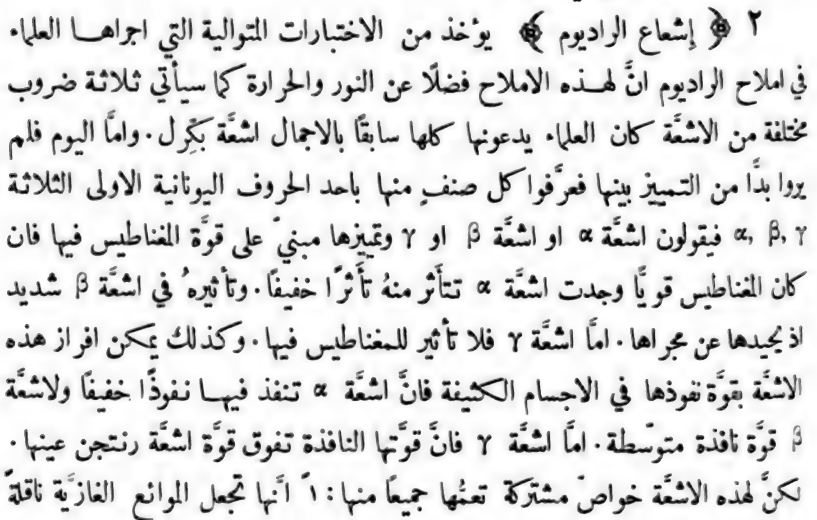 ٢ ﴿ إشعاع الراديوم ﴾ يؤخذ من الاختبارات المتوالية التي اجراها العلماء
في املاح الراديوم انَّ لهذه الاملاح فضلًا عن النور والحرارة كما سيأتي ثلاثة ضروب
مختلفة من الاشعَّة كان العلماء يدعونها كلها سابقًا بالاجمال اشعَّة بكّرِل. وامَّا اليوم فلم
يروا بدًّا من التمييز بينها فعرَّفوا كل صنفٍ منها باحد الحروف اليونانية الاولى الثلاثة
α, β, γ فيقولون اشعَّة α او اشعَّة β او γ وتميزها مبنيّ على قوَّة المغناطيس فيها فان
كان المغناطيس قويًّا وجدت اشعَّة α تتأثر منهُ تأثرًا خفيفًا. وتأثيرهُ في اشعَّة β شديد
اذ يحيدها عن مجراها. امَّا اشعَّة γ فلا تأثير للمغناطيس فيها. وكذلك يمكن افراز هذه
الاشعَّة بقوَّة نفوذها في الاجسام الكثيفة فانَّ اشعَّة α تنفذ فيها نفوذًا خفيفًا ولاشعَّة
β قوَّة نافذة متوسّطة. امَّا اشعَّة γ فانَّ قوَّتها النافذة تفوق قوَّة اشعَّة رنتجن عينها.
لكنَّ لهذه الاشعَّة خواصّ مشتركة تعمُّها جميعًا منها: ١ً انَّها تجعل الموائع الغازيَّة ناقلةً